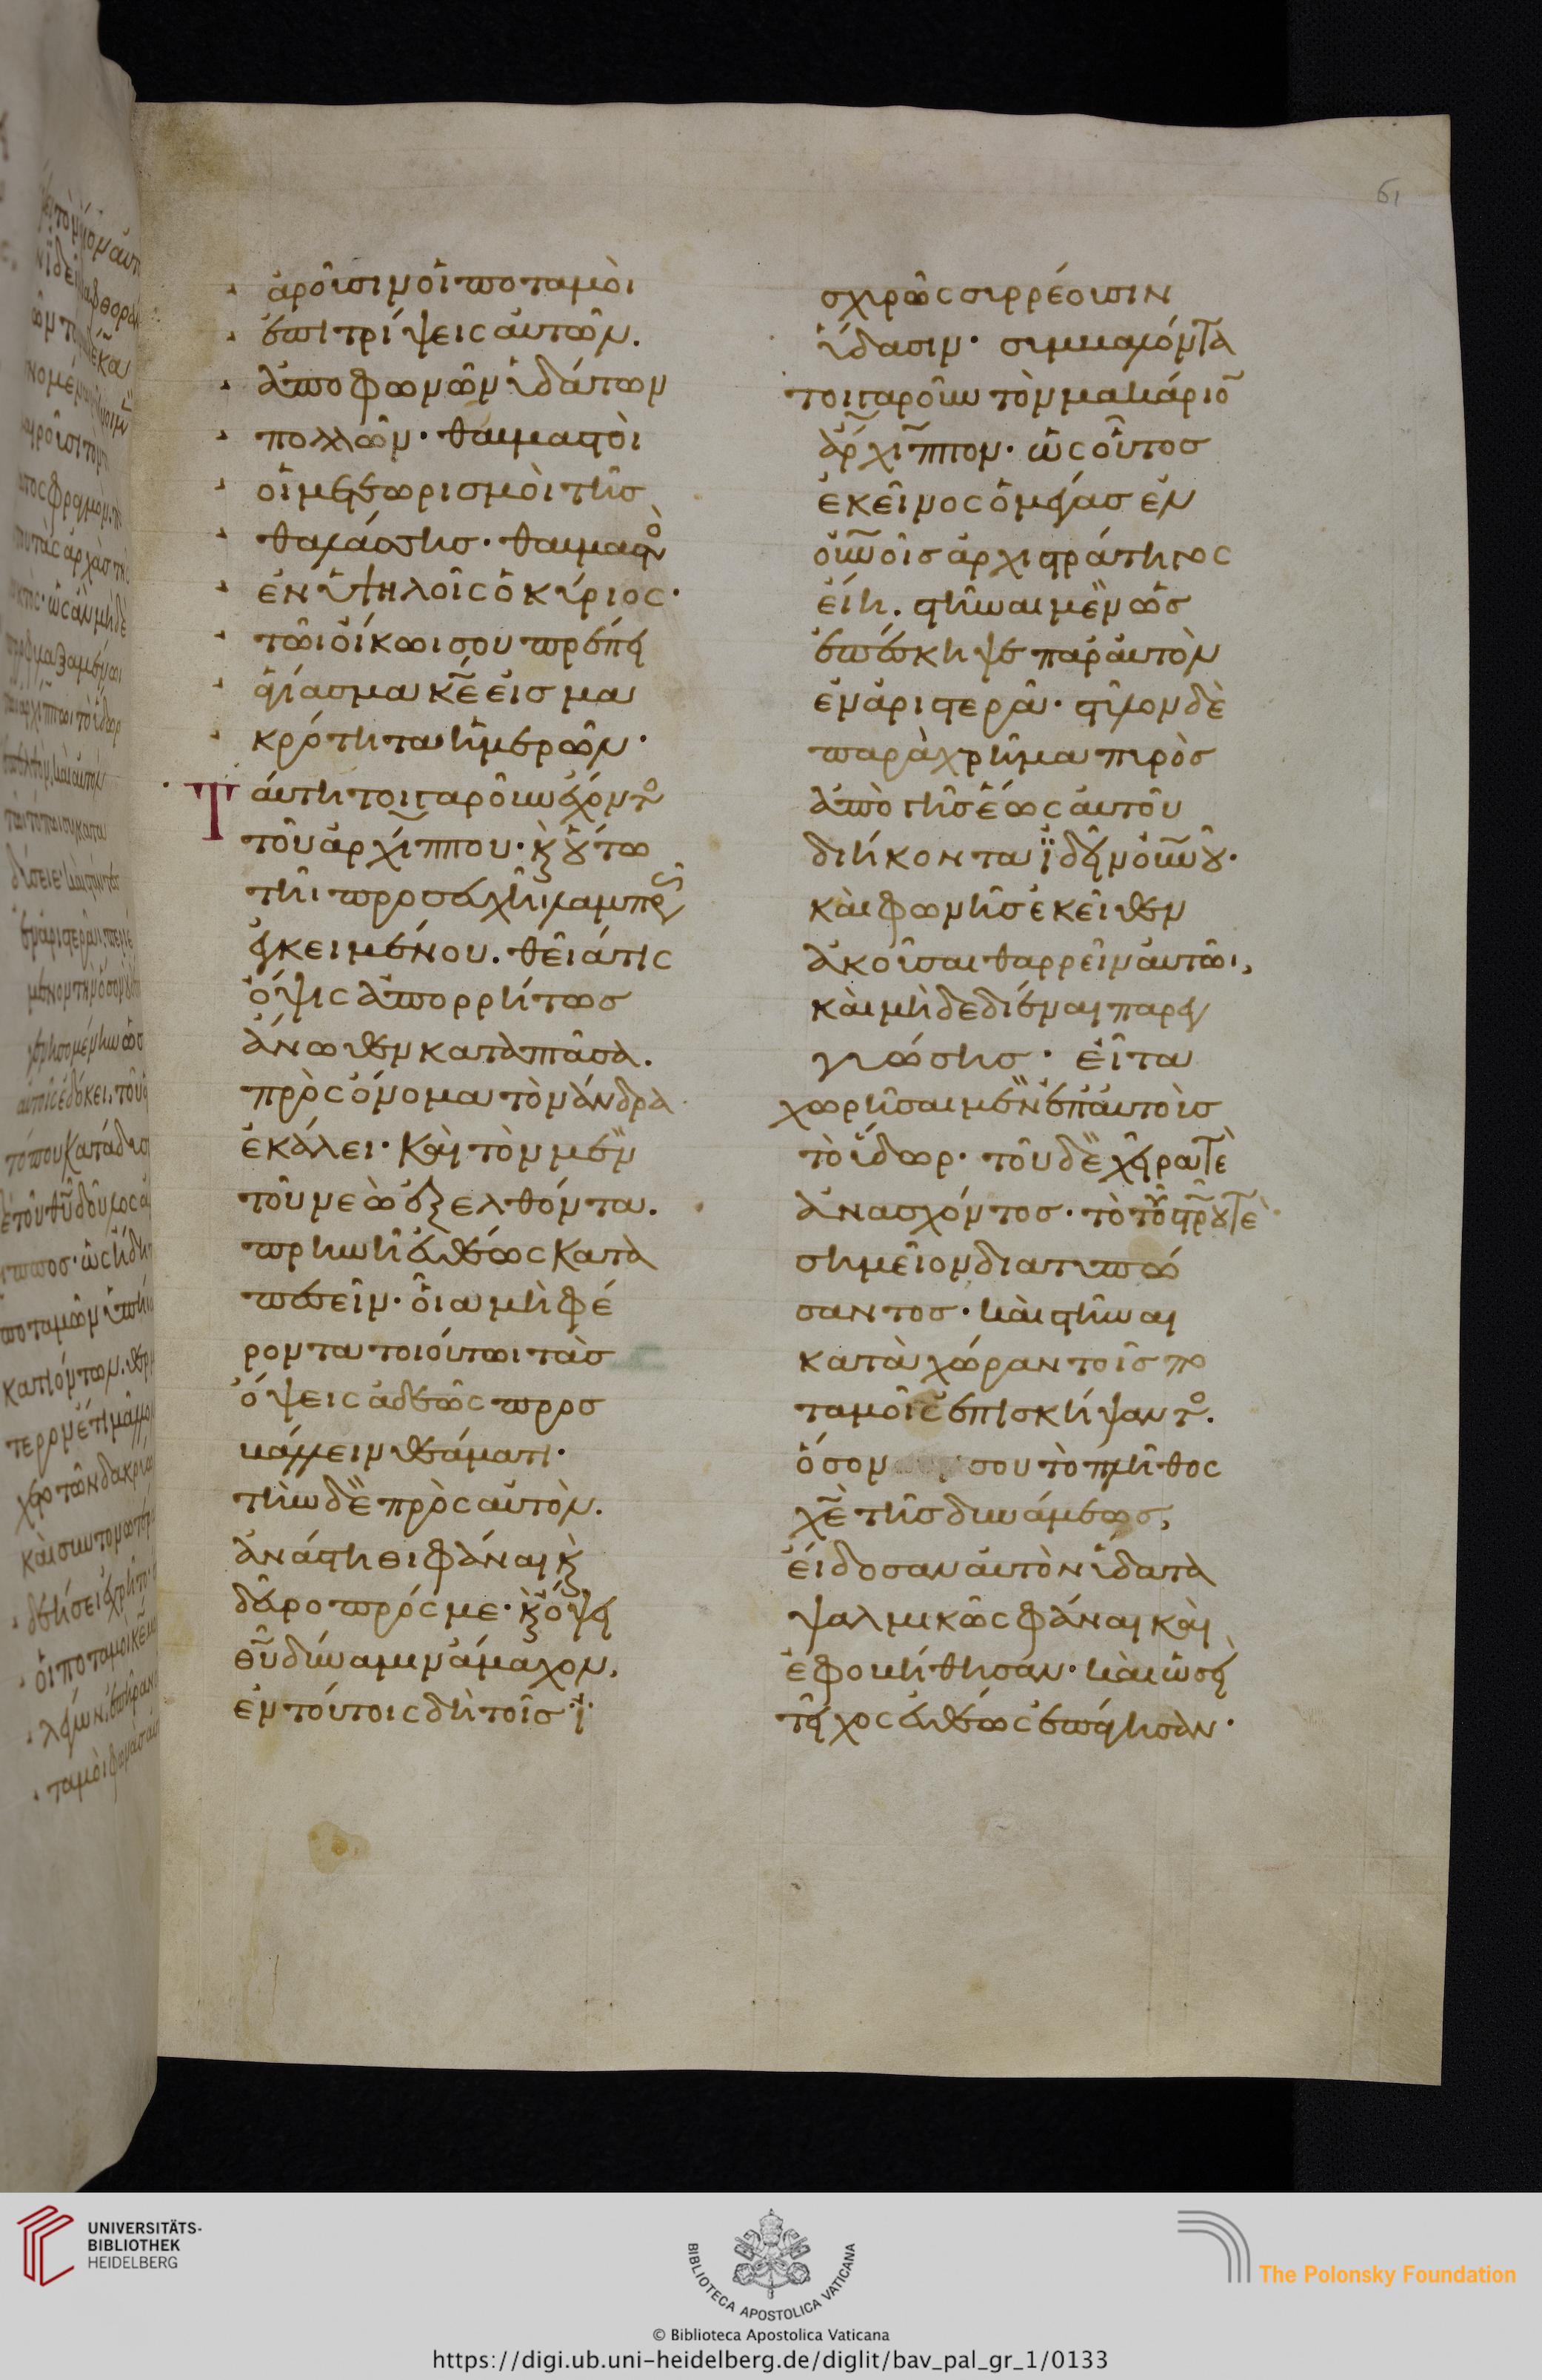 61
ἀροῦσιν οἱ ποταμοὶ
ἐπιτρίψεις αὐτῶν.
ἀπο φωνῶν ὑδάτων
πολλῶν· θαυμαστοὶ
οἱ μετεωρισμοὶ τῆσ
θαλάσσησ· θαυμαστὸ
ἐν ὑψηλοῖς ὁ κύριος·
τῶι οἴκωι σου πρέπει
ἁγίασμα κ̅ε̅ εἰσ μα
κρότητα ἡμερῶν·
Ταύτη τοιγαροῦν ἔχοντο
τοῦ ἀρχίππου· κ οὕτω
τῆι προσευχῆι λαμπρῶς
ἐγκειμένου. θεῖά τις
ὄψις ἀπορρήτωσ
ἄνωθεν καταπτᾶσα.
πρὸς ὄνομα τὸν ἄνδρα
ἐκάλει· καὶ τὸν μὲν
τοῦ νεὼ ἐξελθόντα.
πρηνῆ εὐθέως κατα
πεσεῖν· οἷα μὴ φέ
ροντα τοιούτωι τὰσ
ὄψεις ἀδεῶς προσ
βάλλειν θεάματι·
τὴν δὲ πρὸς αὐτὸν.
ἀνάστηθι φάναι κ
δεῦρο πρός με· κ ὄψει
θ̅υ̅ δύναμιν ἄμαχον,
ἐν τούτοις δὴ τοῖσ ἰ
σχυρῶς συρρέουσιν
ὕδασιν· συγκαλόντα
τοιγαροῦν τὸν μακάριο
ἀρχιππον· ὡς οὗτοσ
ἐκεῖνος ὁ μέγας ἐν
οὐνοῖσ ἀρχιστράτηγος
εἴη. στῆναι μὲν ὡσ
ἐπέσκηψε παρ αὐτὸν
ἐν ἀριστερᾶ· στῦλον δὲ
παραχρῆμα πυρὸσ
ἀπὸ γῆσ ἕως αὐτοῦ
διήκοντα ἰδεῖν οὐνοῦ·
καὶ φωνῆσ ἐκεῖθεν
ἀκοῦσαι θαρρεῖν αὐτῶι,
καὶ μὴ δεδιέναι παρεγ
γυώσησ· εἶτα
χωρῆσαι μὲν ἐπ αὐτοὶσ
τὸ ὕδωρ· τοῦ δὲ χεῖρα τὲ
ἀνασχόντοσ· τὸ τοῦ στρ̅ου τὲ
σημεῖον διατυπώ
σαντοσ· καὶ στῆναι
κατὰ χώραν τοῖσ πο
ταμοῖς ἐπισκήψαντο.
ὅσον σου τὸ πλῆθος
χ̅ε̅ τῆσ δυνάμεωσ,
εἴδοσαν αὐτὸν ὕδατα
ψαλμικῶς φάναι καὶ
ἐφοβήθησαν· καὶ ὡσεὶ
τεῖχος εὐθέως ἐπάγησὰν·
UNIVERSITÄTS-
BIBLIOTHEK
HEIDELBERG
BIBLIOTECA APOSTOLICA VATICANA
The Polonsky Foundation
© Biblioteca Apostolica Vaticana
https://digi.ub.uni-heidelberg.de/diglit/bav_pal_gr_1/0133